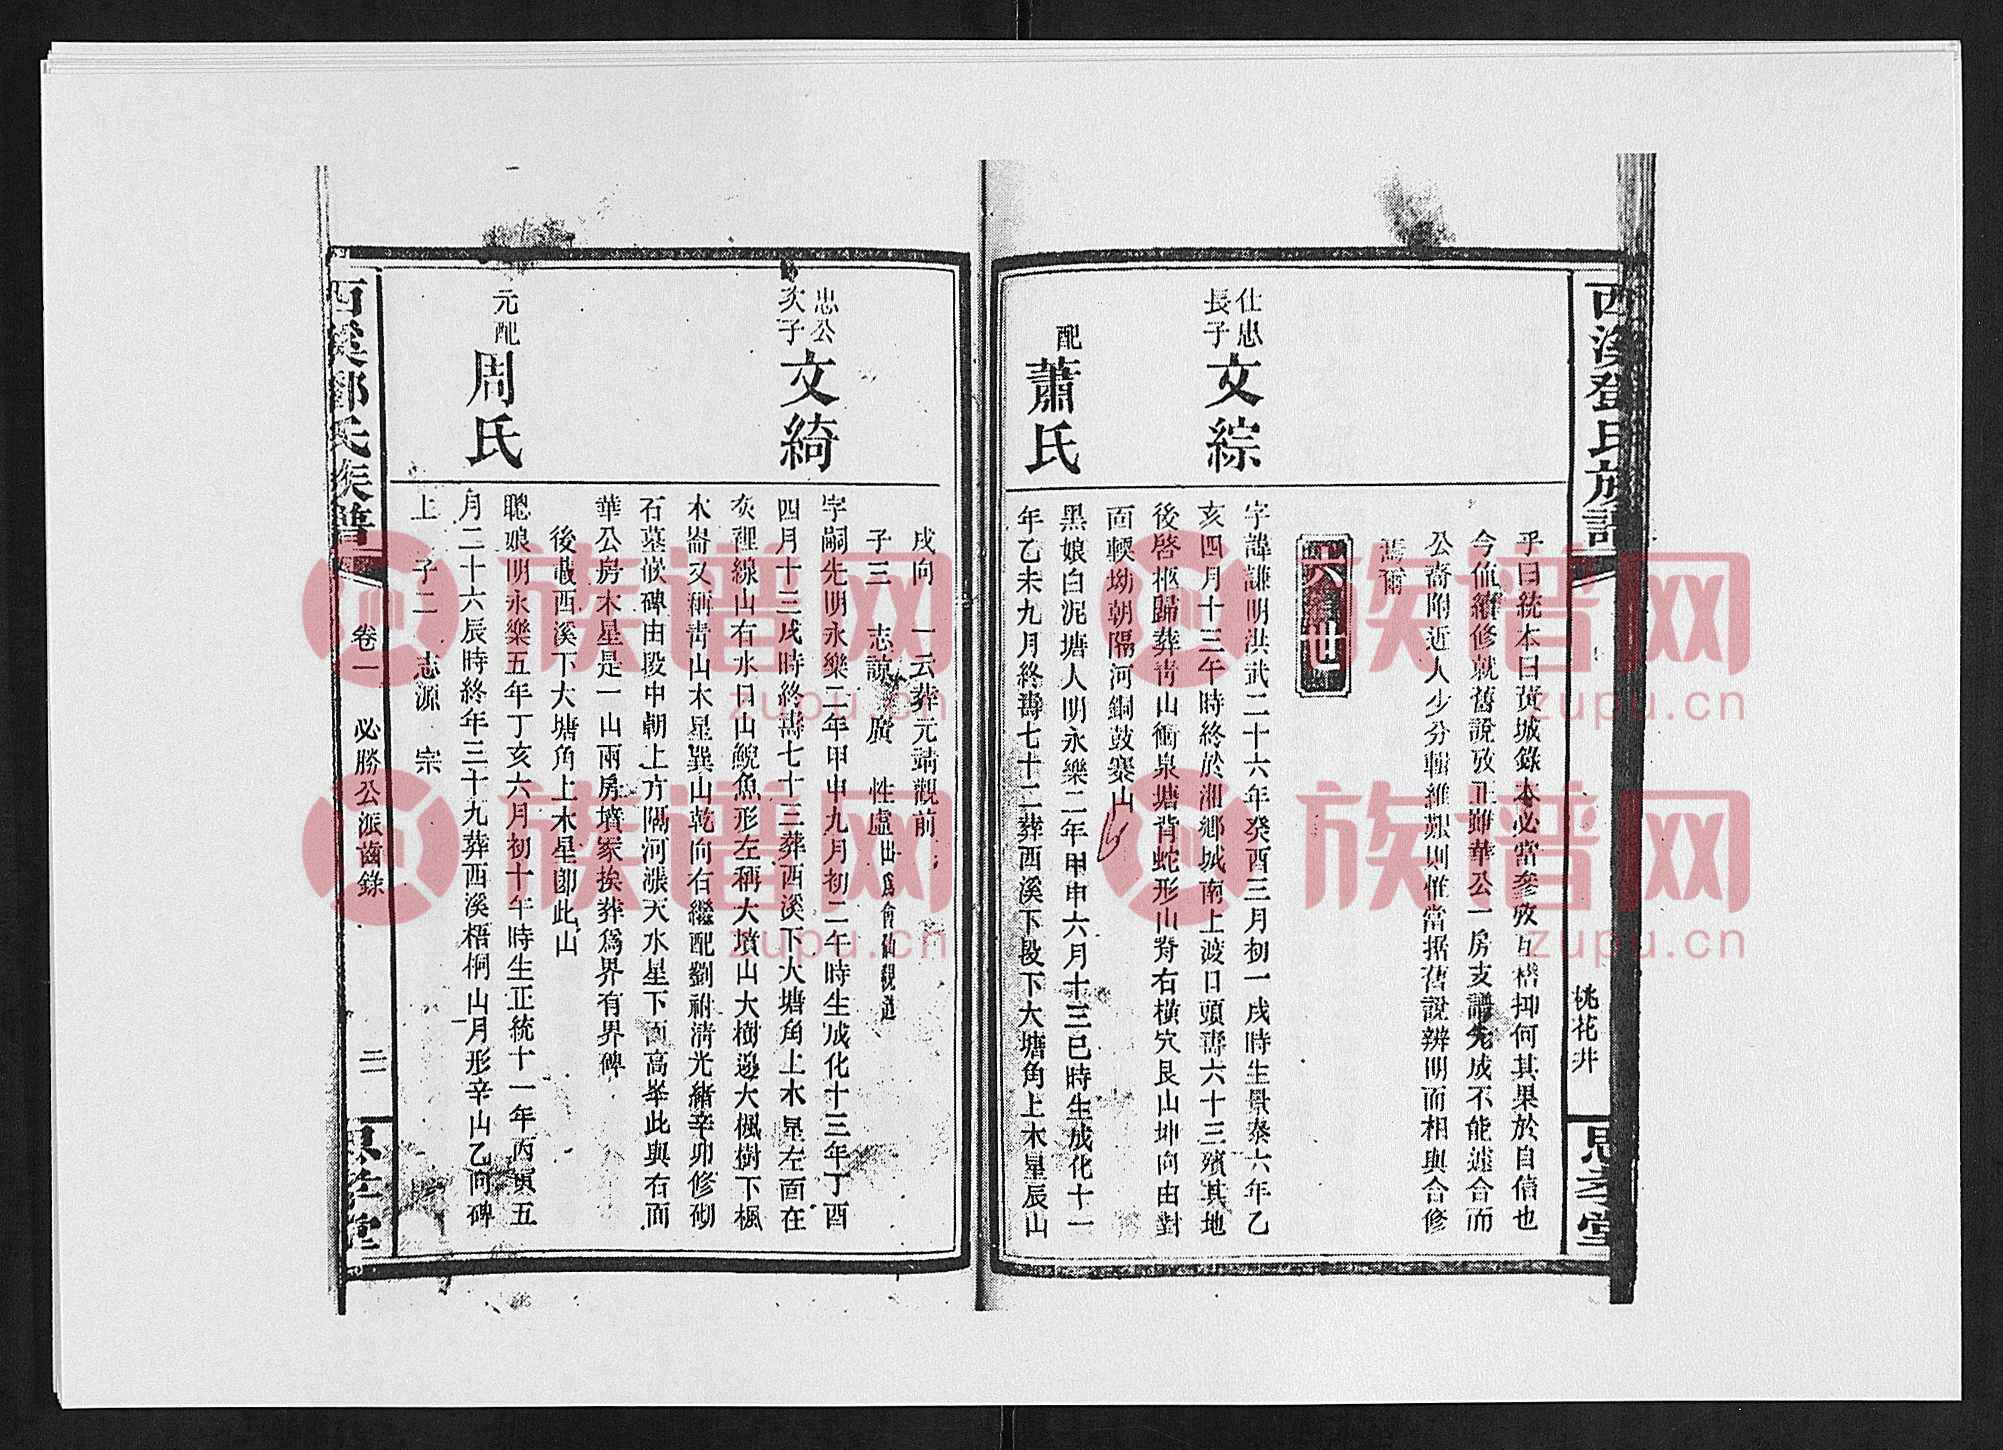 西溪鄧氏族譜
桃花井
思孝堂
乎曰統本曰黃城錄本必當參攷互稽抑何其果於自信也
今値續修就舊說攷正雖華公一房支譜先成不能速合而
公裔附近人少分輯維艱則惟當据舊說辨明而相與合修
焉爾
六世
仕忠長子
文綜
字諱謙明洪武二十六年癸酉三月初一戌時生景泰六年乙
亥四月十三午時終於湘鄉城南上渡口頭壽六十三殯其地
後啓柩歸葬靑山衝泉塘背蛇形山脊右橫穴艮山坤向由對
面輭坳朝隔河銅鼓寨山
配
蕭氏
黑娘白泥塘人明永樂二年甲申六月十三巳時生成化十一
年乙未九月終壽七十二葬西溪下段下大塘角上木星辰山
戌向 一云葬元靖觀前
子三 志諒 廣 性廬山爲會仙觀道
忠公次子
文綺
字嗣先明永樂二年甲申九月初二午時生成化十三年丁酉
四月十三戌時終壽七十三葬西溪下大塘角上木星左面在
灰裡線山右水口山鯢魚形左稱大墳山大樹邊大楓樹下楓
木崙又稱靑山木星巽山乾向右繼配劉祔淸光緒辛卯修砌
石墓嵌碑由段中朝上方隔河漲天水星下面高峯此與右面
華公房木星是一山兩房墳冢挨葬爲界有界碑
後載西溪下大塘角上木星卽此山
元配
周氏
聰娘明永樂五年丁亥六月初十午時生正統十一年丙寅五
月二十六辰時終年三十九葬西溪梧桐山月形辛山乙向碑
上 子二 志源 宗
西溪鄧氏族譜
卷一
必勝公派齒錄
二
思孝堂
族谱网
zupu.cn
族谱网
zupu.cn
族谱网
zupu.cn
族谱网
zupu.cn